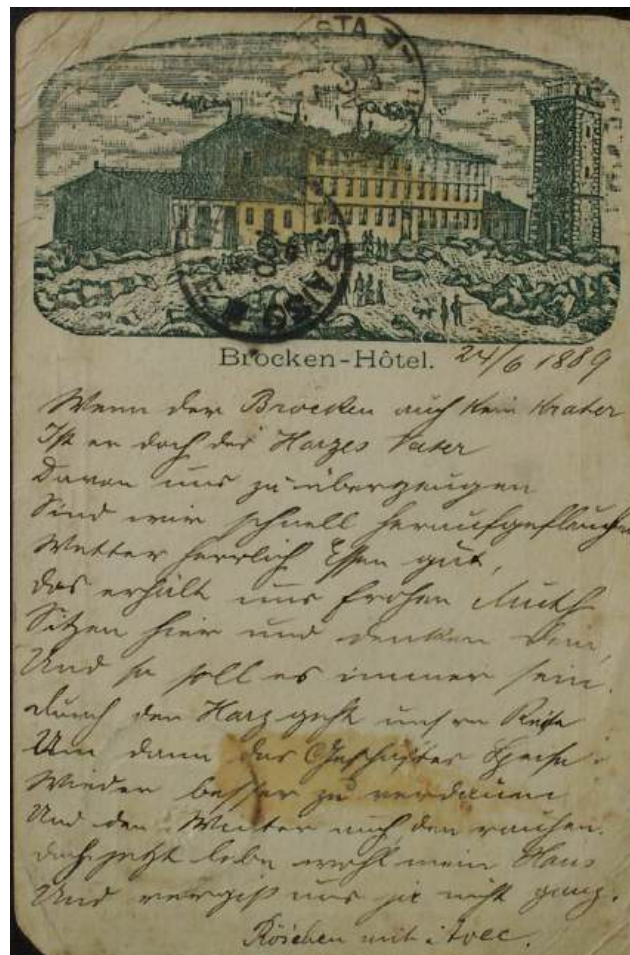 Brocken-Hôtel. 24/6 1889
Wenn der Brocken auch kein Krater
Ist er doch des Harzes Vater
Davon uns zu überzeugen
Sind wir schnell
Wetter herrlich Essen gut,
Das erhält uns frohen Muth
Sitzen hier und denken Dein,
Und so soll es immer sein.
Durch den Harz geht unsre Reise
Um dann des Geschäftes Speise
Wieder besser zu verdauen
Und den Winter auch den rauhen.
Doch jetzt lebe wohl mein Hans
Und vergiß uns ja nicht ganz.
Röschen mit